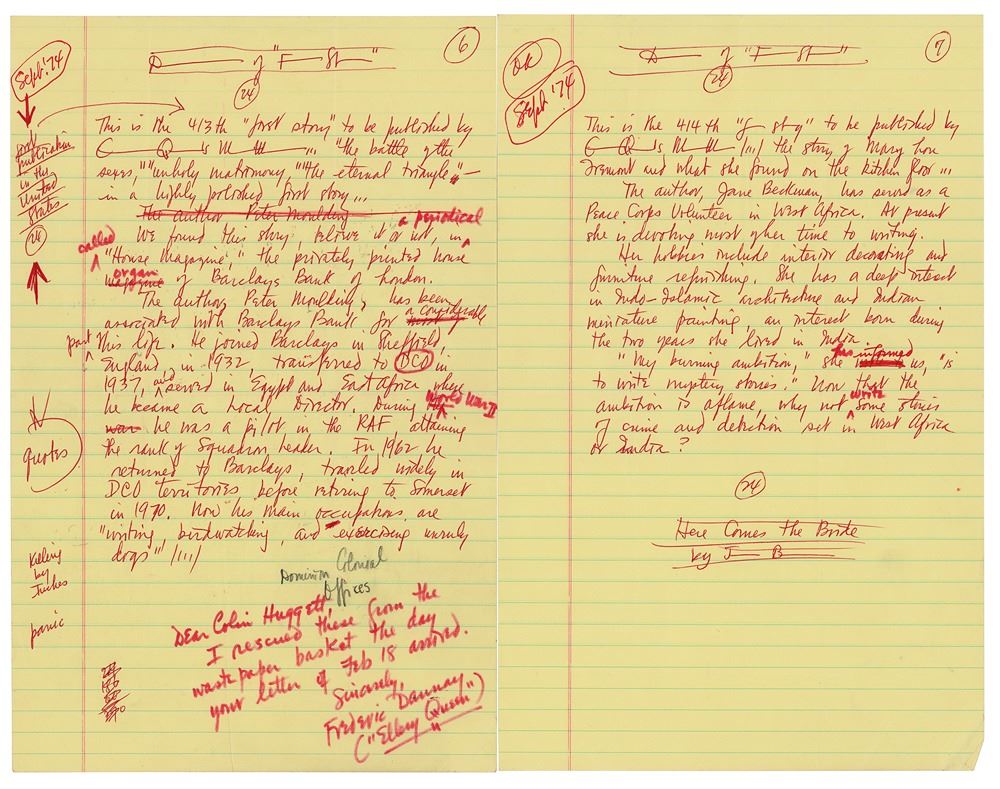 6
Sept '74
D of "F St"
24
This is the 413th "first story" to be published by
E Q 's M M ... "the battle of the
sexes," "unholy matrimony," "the eternal triangle" —
in a highly polished first story...
The author Peter Moulding
We found this story, believe it or not, in a periodical
called "House Magazine," the privately printed house
magazine organ of Barclays Bank of London.
The author, Peter Moulding, has been
associated with Barclays Bank for a considerable
part his life. He joined Barclays in Sheffield,
England, in 1932, transferred to DCO in
1937, and served in Egypt and East Africa where
he became a Local Director. During World War II
war he was a pilot in the RAF, attaining
the rank of Squadron Leader. In 1962 he
returned to Barclays, traveled widely in
DCO territories before retiring to Somerset
in 1970. Now his main occupations are
"writing, birdwatching, and exercising unruly
dogs" /////
1st
publication
in the
United
States
24
quotes
Killing
by
Inches
panic
Dominion Colonial
Offices
Dear Colin Huggett,
I rescued these from the
waste paper basket the day
your letter of Feb 18 arrived.
Sincerely,
Frederic Dannay
("Ellery Queen")
7
OK
Sept '74
D of "F St"
24
This is the 414th "f story" to be published by
E Q 's M M /////the story of Mary Lou
Tremont and what she found on the kitchen floor ...
The author, Jane Beckman, has served as a
Peace Corps Volunteer in West Africa. At present
she is devoting most of her time to writing.
Her hobbies include interior decorating and
furniture refinishing. She has a deep interest
in Indo-Islamic architecture and Indian
miniature painting, an interest born during
the two years she lived in India.
"My burning ambition," she has informed us, "is
to write mystery stories." Now that the
ambition is aflame, why not write some stories
of crime and detection set in West Africa
or India?
24
Here Comes the Bride
by J B